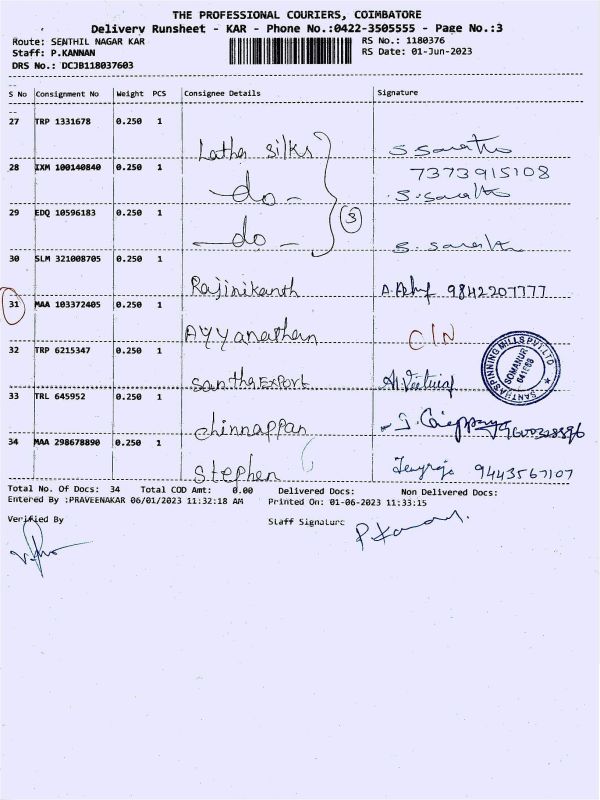 THE PROFESSIONAL COURIERS, COIMBATORE
Delivery Runsheet - KAR - Phone No.:0422-3505555 - Page No.:3
Route: SENTHIL NAGAR KAR RS No.: 1180376
Staff: P.KANNAN RS Date: 01-Jun-2023
DRS No.: DCJB118037603
S No Consignment No Weight PCS Consignee Details Signature
27 TRP 1331678 0.250 1
Latha silks
28 IXM 100140840 0.250 1 7373915108
-do-
29 EDQ 10596183 0.250 1 3
-do-
30 SLM 321008705 0.250 1
Rajinikanth 9842207777
31 MAA 103372405 0.250 1
Ayyanathan C/N
32 TRP 6215347 0.250 1
Santha Export
SANTHA SPINNING MILLS PVT. LTD
SOMANUR
641668
33 TRL 645952 0.250 1
chinnappan
34 MAA 298678890 0.250 1
Stephen 9443567107
Total No. Of Docs: 34 Total COD Amt: 0.00 Delivered Docs: Non Delivered Docs:
Entered By :PRAVEENAKAR 06/01/2023 11:32:18 AM Printed On: 01-06-2023 11:33:15
Verified By Staff Signature